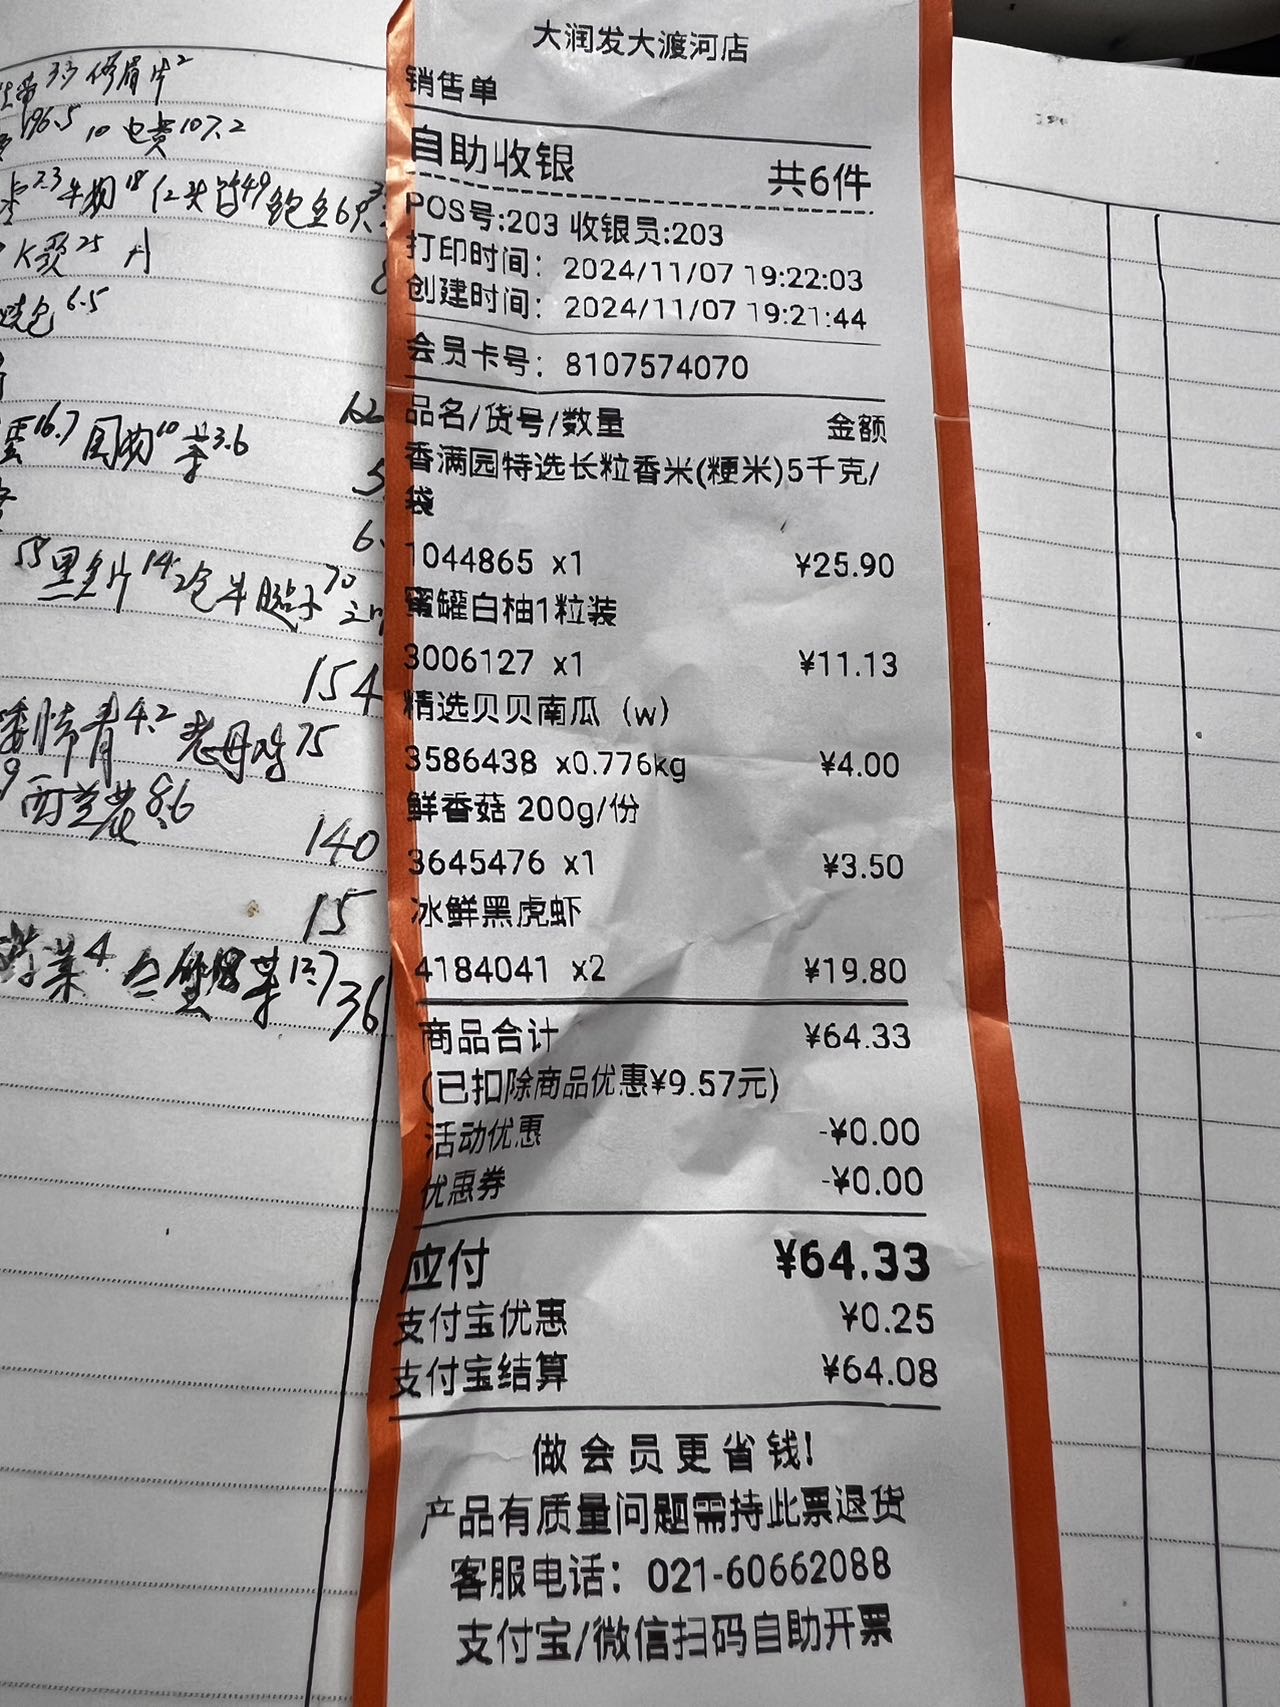 大润发大渡河店
销售单
自助收银 共6件
POS号:203 收银员:203
打印时间：2024/11/07 19:22:03
创建时间：2024/11/07 19:21:44
会员卡号：8107574070
品名/货号/数量 金额
香满园特选长粒香米(粳米)5千克/
袋
1044865 x1 ¥25.90
蜜罐白柚1粒装
3006127 x1 ¥11.13
精选贝贝南瓜（w）
3586438 x0.776kg ¥4.00
鲜香菇 200g/份
3645476 x1 ¥3.50
冰鲜黑虎虾
4184041 x2 ¥19.80
商品合计 ¥64.33
(已扣除商品优惠¥9.57元)
活动优惠 -¥0.00
优惠券 -¥0.00
应付 ¥64.33
支付宝优惠 ¥0.25
支付宝结算 ¥64.08
做会员更省钱!
产品有质量问题需持此票退货
客服电话：021-60662088
支付宝/微信扫码自助开票
33 修眉片2
196.5 10 电费107.2
K歌25
6.5
16.7 10 菜3.6
154
4.2 老母鸡75
西兰花8.6
140
15
菜4 菜12.7
36